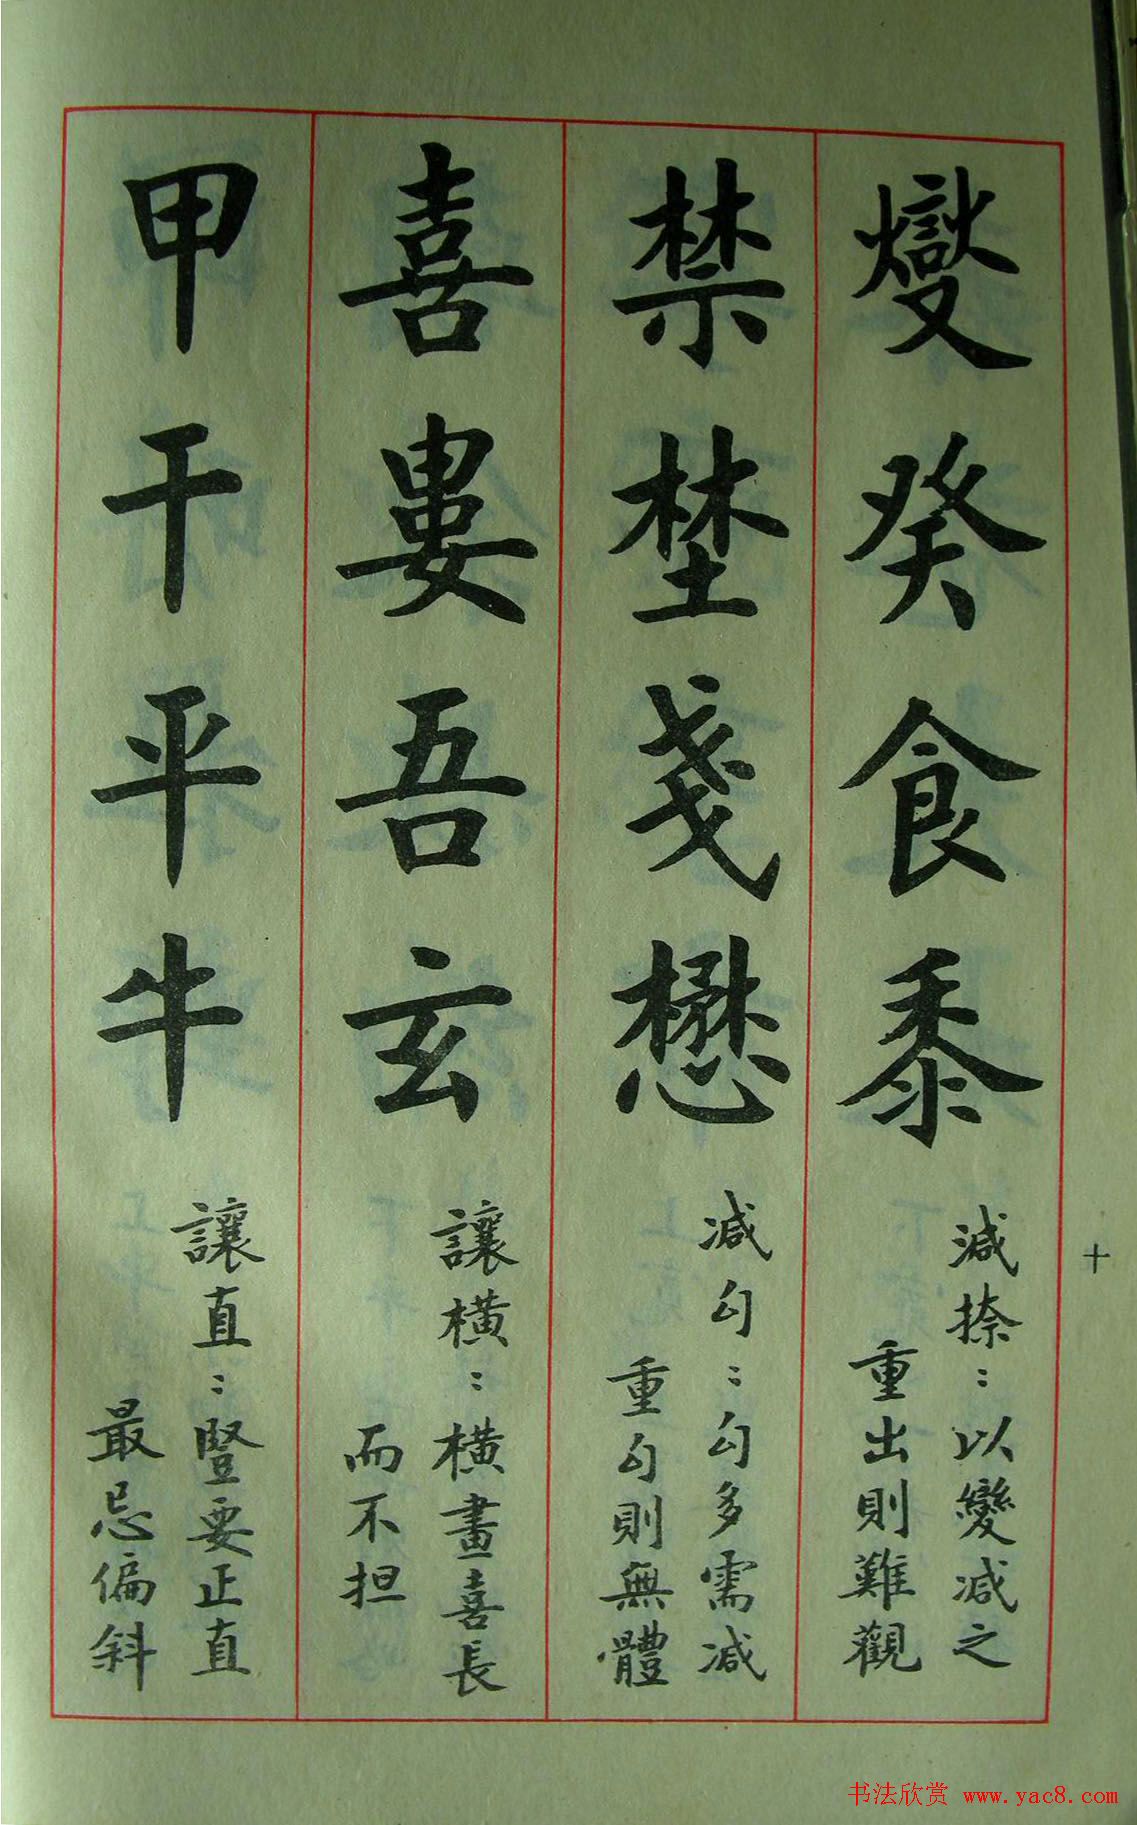 燮癸食黍
減捺：以變減之
重出則難觀
禁埜戔懋
減勾：勾多需減
重勾則無體
喜婁吾玄
讓橫：橫畫喜長
而不担
甲干平牛
讓直：豎要正直
最忌偏斜
十
书法欣赏 www.yac8.com